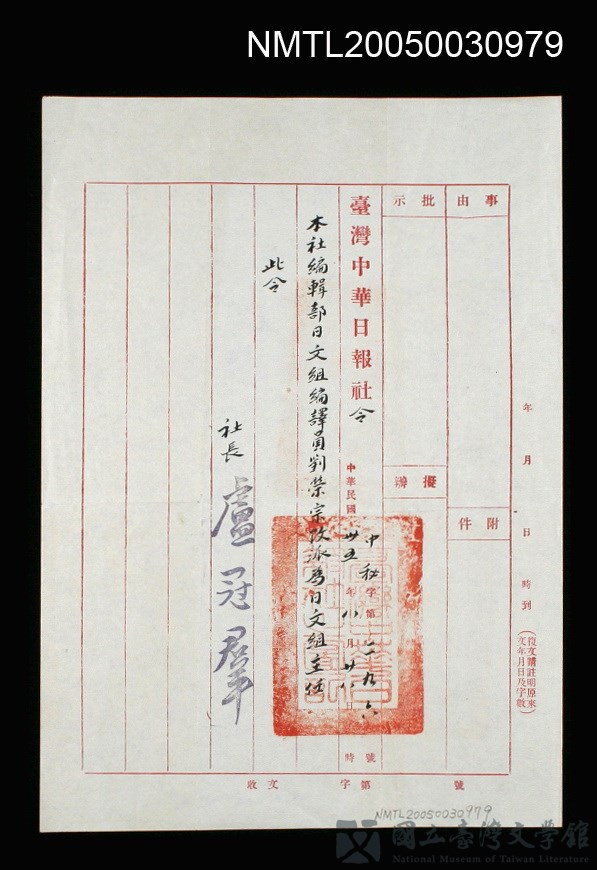 NMTL20050030979
事由
附件
批示
擬辦
年 月 日 時到
(復文請註明原來
文年月日及字號)
臺灣中華日報社令
中秘字第二一九六號
中華民國卅五年八月廿八日 時
本社編輯部日文組編譯員劉榮宗改派為日文組主任
此令
社長
盧冠羣
收文 字第 號
NMTL20050030979
國立臺灣文學館
National Museum of Taiwan Literature